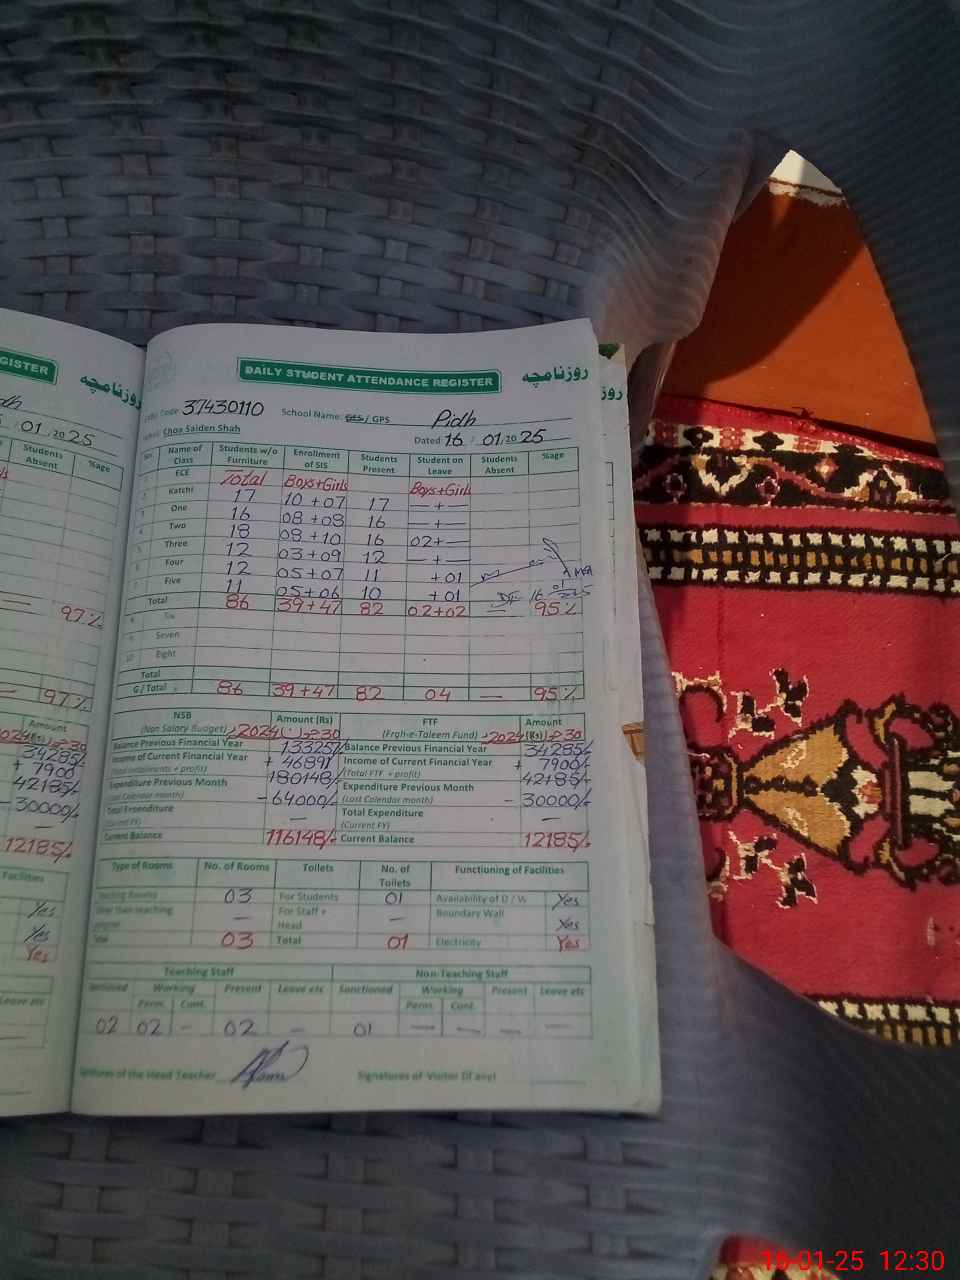 GISTER
روزنامچہ
/ 01 / 2025
Students Absent
%age
97%
97%
Amount
34285/-
+ 7900/-
42185/-
30000/-
—
12185/-
Facilities
Yes
Yes
Yes
Leave etc
DAILY STUDENT ATTENDANCE REGISTER
روزنامچہ
روز
Code 37430110 School Name: GES / GPS Pidh
Choa Saiden Shah Dated 16 / 01 / 2025
Name of Class Students w/o Furniture Enrollment of SIS Students Present Student on Leave Students Absent %age
ECE Total Boys+Girls Boys+Girls
Katchi 17 10+07 17 — + —
One 16 08+08 16 — + —
Two 18 08+10 16 02+—
Three 12 03+09 12 — + —
Four 12 05+07 11 +01
Five 11 05+06 10 +01
Total 86 39+47 82 02+02 — 95%
Six
Seven
Eight
Total
G / Total 86 39+47 82 04 — 95%
NSB Amount (Rs) FTF Amount
(Non Salary Budget) (Frgh-e-Taleem Fund) (Rs)
Balance Previous Financial Year 133257/- Balance Previous Financial Year 34285/-
Income of Current Financial Year + 46891/- Income of Current Financial Year + 7900/-
(Total installments + profit) 180148/- (Total FTF + profit) 42185/-
Expenditure Previous Month - 64000/- Expenditure Previous Month - 30000/-
(Last Calendar month) (Last Calendar month)
Total Expenditure — Total Expenditure —
(Current FY) (Current FY)
Current Balance 116148/- Current Balance 12185/-
Type of Rooms No. of Rooms Toilets No. of Toilets Functioning of Facilities
Teaching Rooms 03 For Students 01 Availability of D / W Yes
Other than teaching — For Staff + Head — Boundary Wall Yes
Total 03 Total 01 Electricity Yes
Teaching Staff Non-Teaching Staff
Working Present Leave etc Sanctioned Working Present Leave etc
Perm. Cont. Perm. Cont.
02 02 - 02 - 01 — — — —
Signatures of the Head Teacher Signatures of Visitor (if any)
16-01-25 12:30